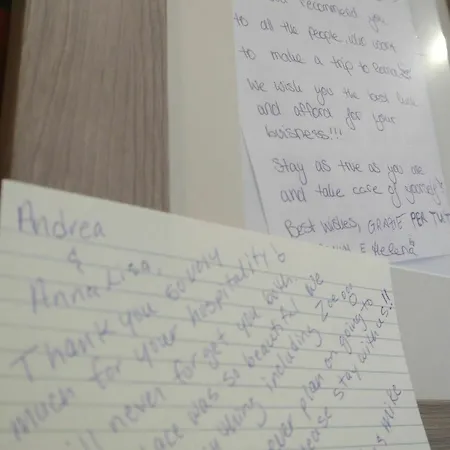 recommend you
to all the people, who want
to make a trip to
We wish you the best luck
and afford for your
buisness!!!
Stay as true as you are
and take care of yourself
Best wishes, GRAZIE PER TUT
E Helena
Andrea
&
Anna Lisa,
Thank you so very
much for your hospitality!
will never forget you both
place was so beautiful
thing including
ever plan on going to
please stay with us!!!
Mike